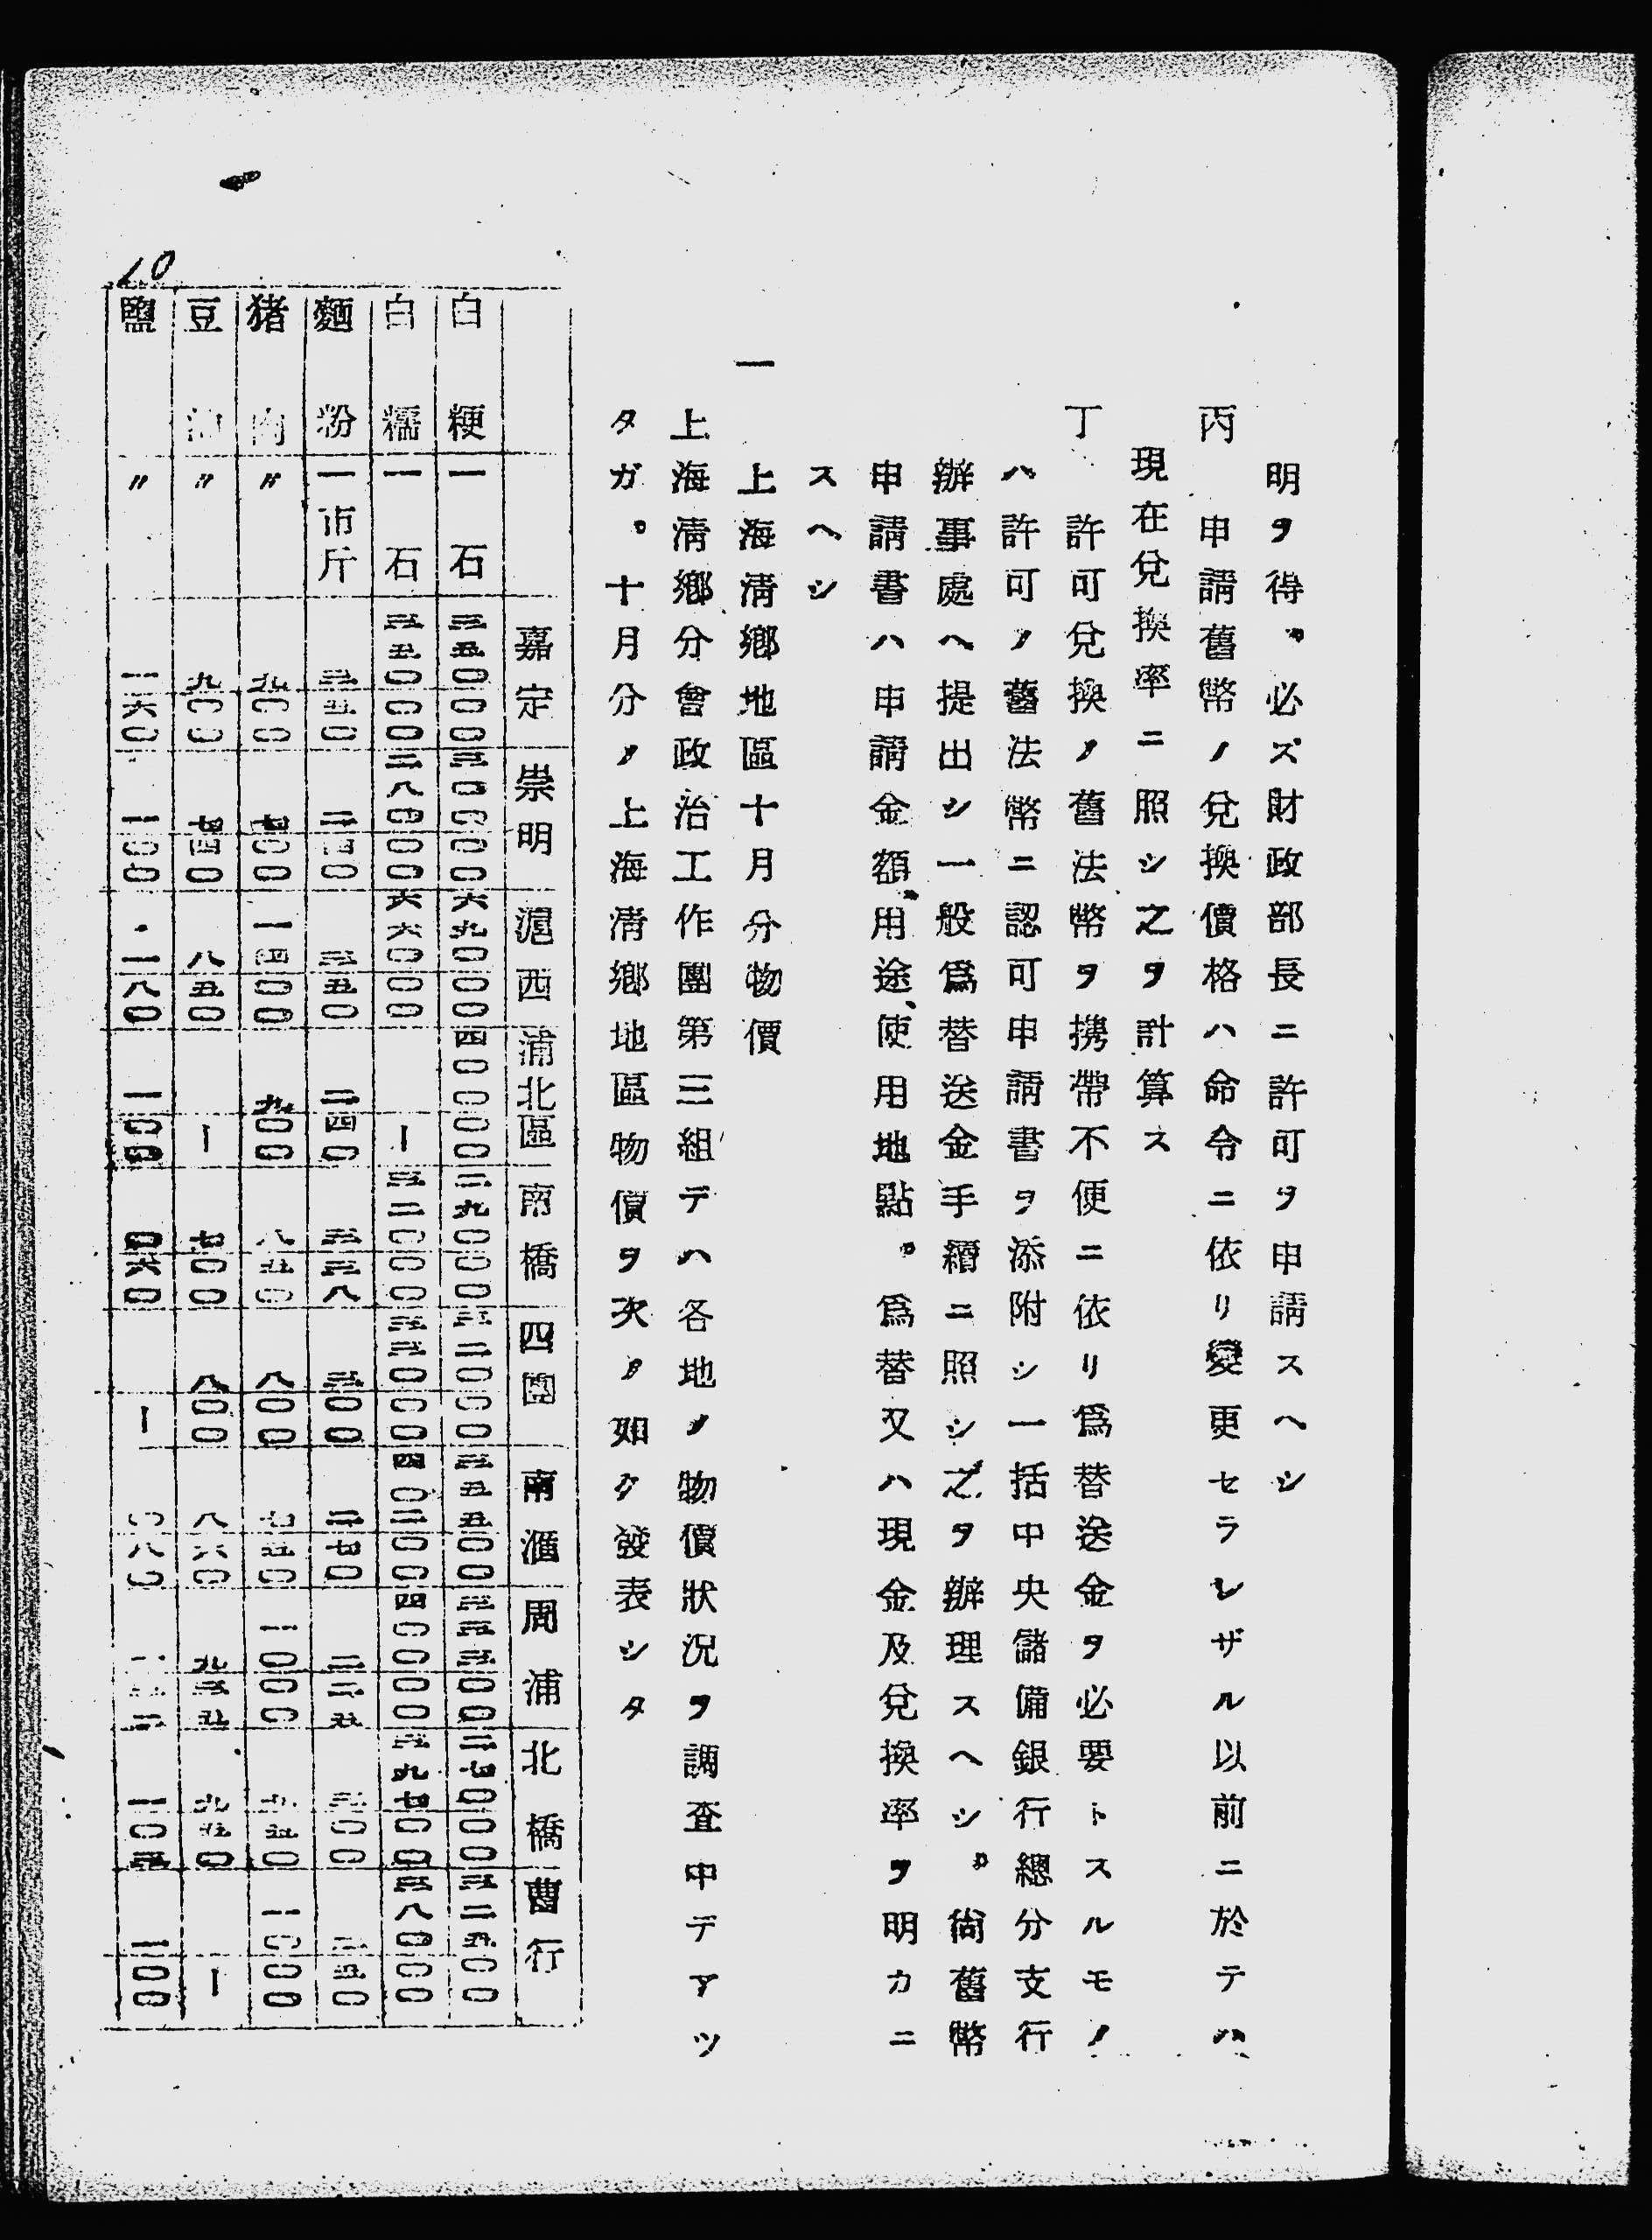 明ヲ得。必ズ財政部長ニ許可ヲ申請スヘシ
丙　申請舊幣ノ兌換價格ハ命令ニ依リ變更セラレザル以前ニ於テハ
現在兌換率ニ照シ之ヲ計算ス
丁　許可兌換ノ舊法幣ヲ携帶不便ニ依リ爲替送金ヲ必要トスルモノ
ハ許可ノ舊法幣ニ認可申請書ヲ添附シ一括中央儲備銀行總分支行
辦事處ヘ提出シ一般爲替送金手續ニ照シ之ヲ辦理スヘシ。尙舊幣
申請書ハ申請金額用途、使用地點。爲替又ハ現金及兌換率ヲ明カニ
スヘシ
一　上海淸鄕地區十月分物價
上海淸鄕分會政治工作團第三組デハ各地ノ物價狀況ヲ調査中デアツ
タガ。十月分ノ上海淸鄕地區物價ヲ次ノ如ク發表シタ
嘉定　崇明　滬西　浦北區　南橋　四團　南滙　周浦　北橋　曹行
白粳　一石　三五〇〇〇　三〇〇〇〇　六九〇〇〇　四〇〇〇〇　二九〇〇〇　三二〇〇〇　三五五〇〇　三三三〇〇　二七〇〇〇　三二五〇〇
白糯　一石　三五〇〇〇　二八〇〇〇　六六〇〇〇　ー　三二〇〇〇　三三〇〇〇　四〇二〇〇　四〇〇〇〇　三九七〇〇　三八〇〇〇
麵粉　一市斤　三五〇　二四〇　三五〇　二四〇　三三八　三〇〇　二七〇　二二五　三〇〇　三五〇
猪肉　〃　九〇〇　七〇〇　一四〇〇　九〇〇　八五〇　八〇〇　七五〇　一〇〇〇　九五〇　一〇〇〇
豆油　〃　九〇〇　七四〇　八五〇　ー　七〇〇　八〇〇　八六〇　九三五　九五〇　ー
鹽　〃　一六〇　一〇〇　一八〇　一〇〇　〇六〇　ー　〇八〇　一〇三　一〇〇
10